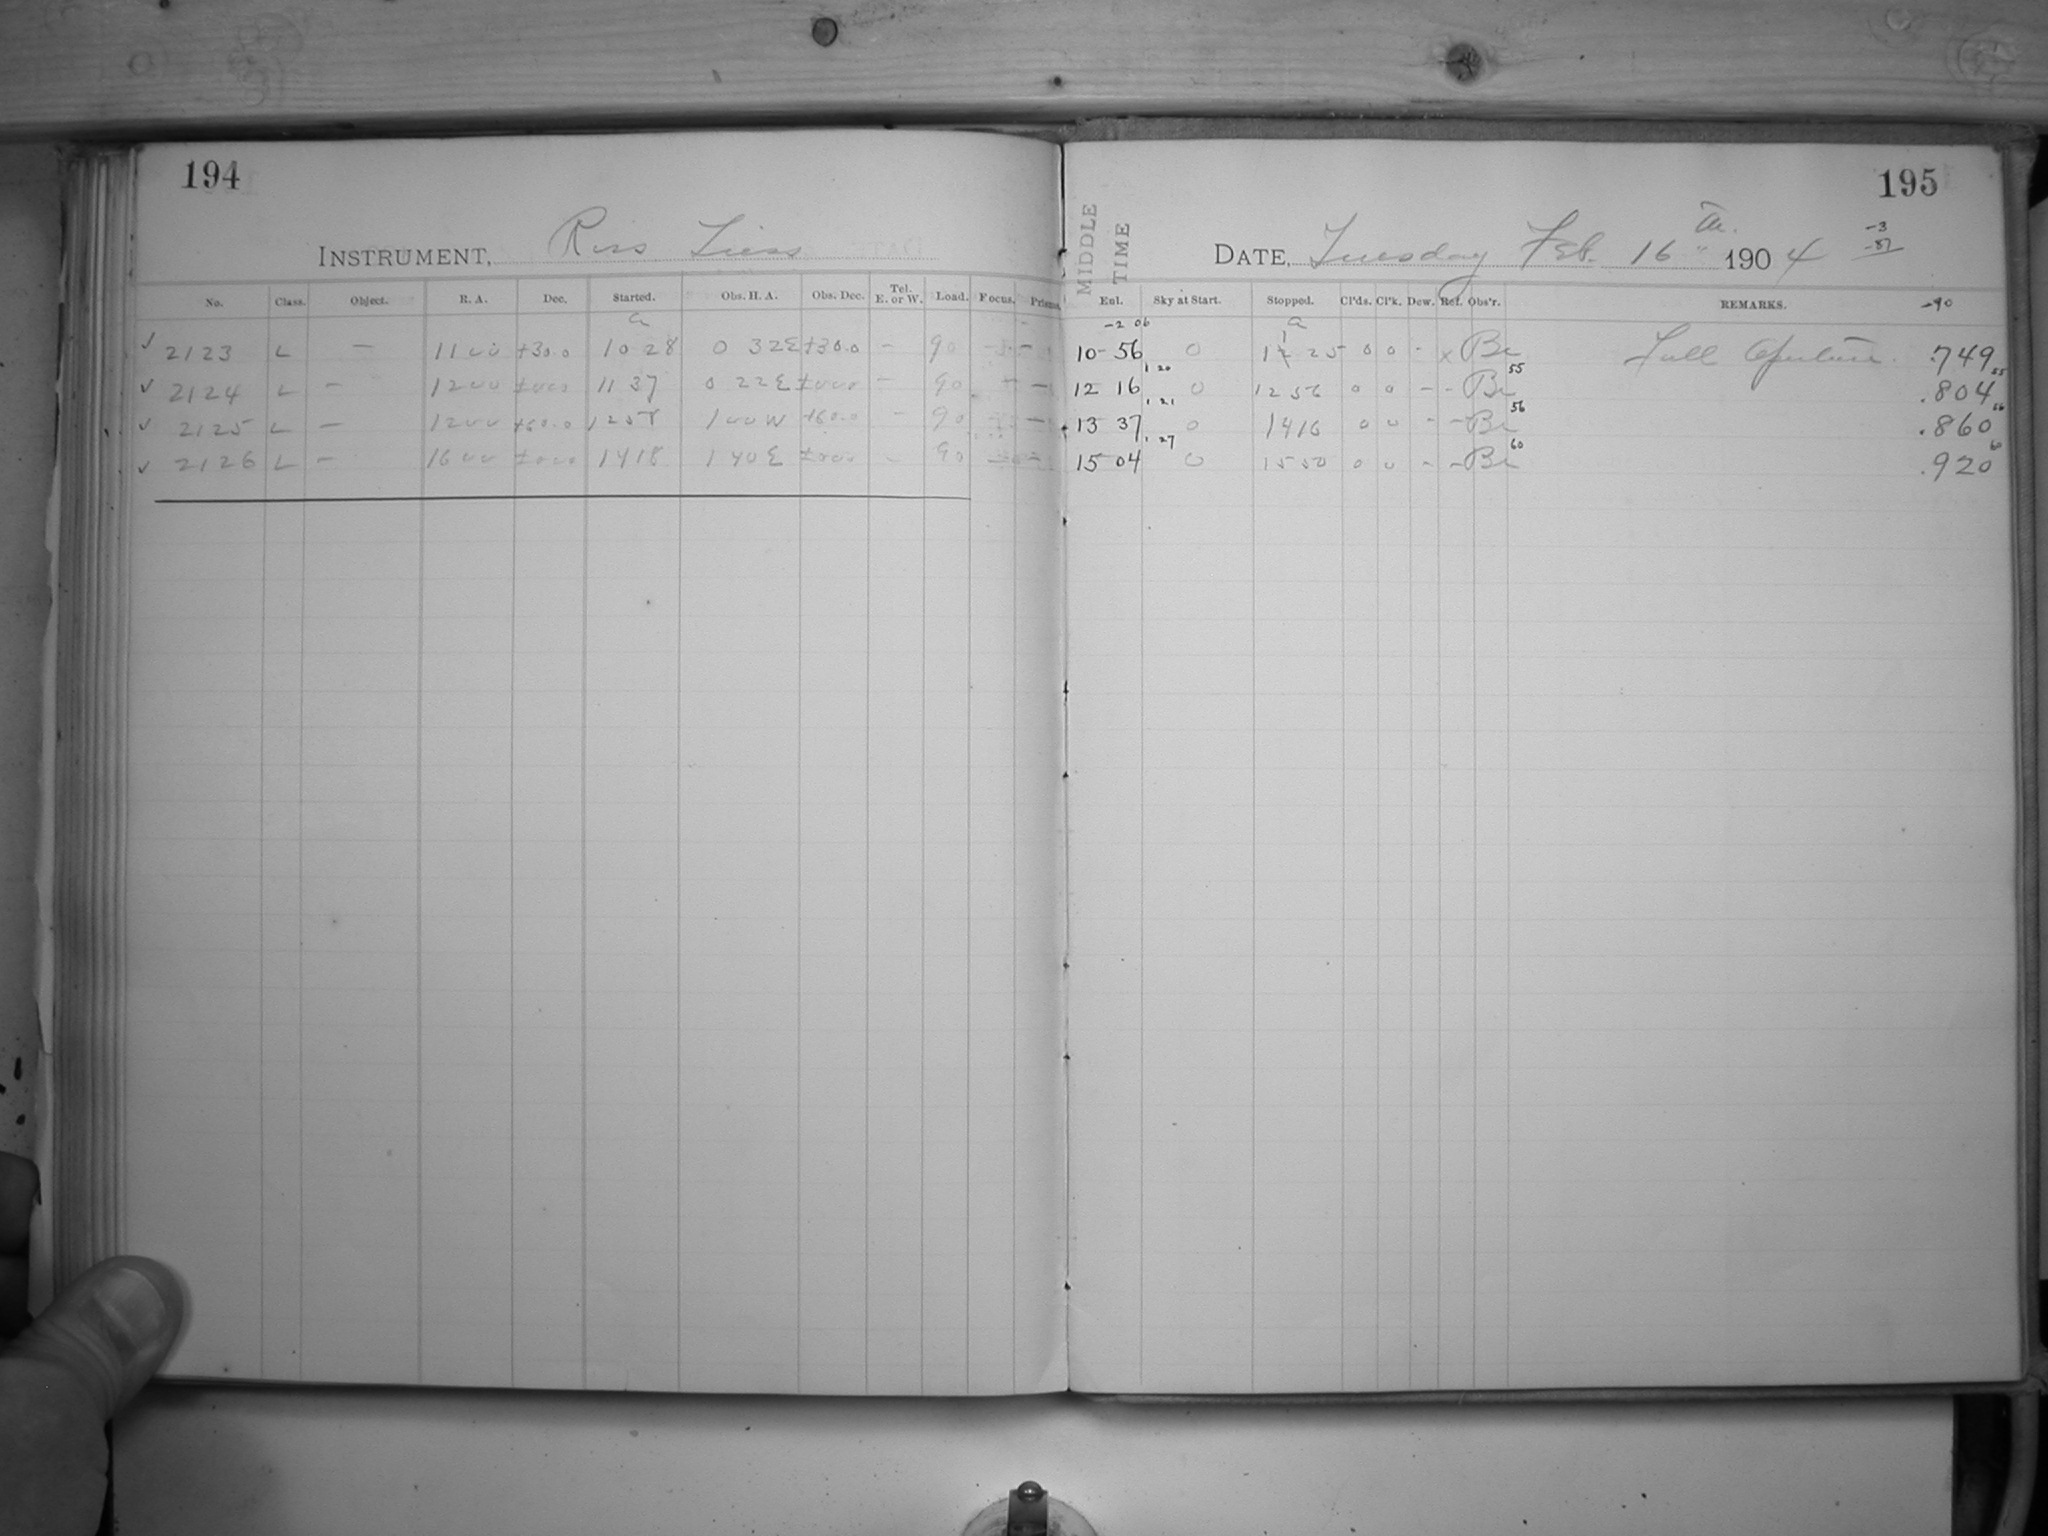 194
INSTRUMENT, Ross Lens
No. Class. Object. R. A. Dec. Started. Obs. H. A. Obs. Dec. Tel. E. or W. Load. Focus. Prisms.
a
✓ 2123 L — 11 00 +30.0 10 28 0 32 E +30.0 – 90 – –
✓ 2124 L – 12 00 ±000 11 37 0 22 E ±000 – 90 – –
✓ 2125 L – 12 00 +60.0 1258 1 00 W +60.0 – 90 – –
✓ 2126 L – 16 00 ±000 1418 1 40 E ±000 – 90 – –
195
MIDDLE TIME
DATE, Tuesday Feb. 16 th. 1904
-3
-87
-90
Enl. Sky at Start. Stopped. Cl'ds. Cl'k. Dew. Ref. Obs'r. REMARKS.
-2 06 a
10-56 0 11 25 0 0 - x Be Full Aperture. .749
1 20 55 55
12 16 0 1256 0 0 - - Be .804
1 21 56 56
13 37 0 1416 0 0 - - Be .860
1 27 60 60
15 04 0 1550 0 0 - - Be .920